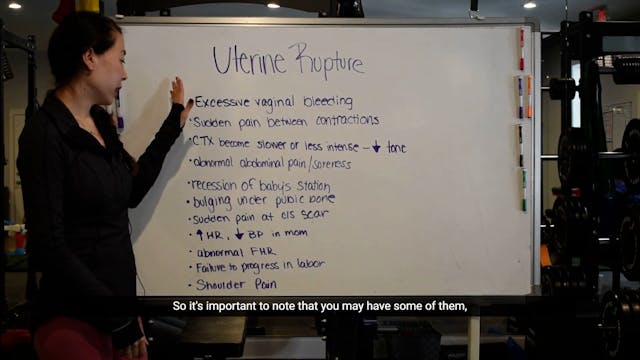 Uterine Rupture
• Excessive vaginal bleeding
• Sudden pain between contractions
• CTX become slower or less intense - ↓ tone
• abnormal abdominal pain/soreness
• recession of baby's station
• bulging under pubic bone
• Sudden pain at c/s scar
• ↑ HR, ↓ BP in mom
• abnormal FHR
• Failure to progress in labor
• Shoulder Pain
So it's important to note that you may have some of them,